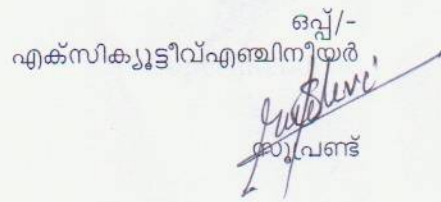 ഒപ്പ്/-
എക്സിക്യൂട്ടീവ്എഞ്ചിനീയർ
സൂപ്രണ്ട്